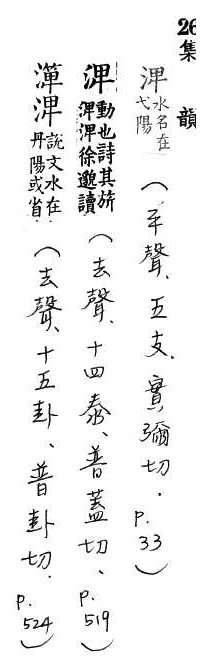 26集韻
淠水名在弋陽(平聲、五支、賓彌切.p.33)
淠動也詩其旂淠淠徐邈讀(去聲、十四泰、普蓋切.p.519)
渒淠說文水在丹陽或省(去聲、十五卦、普卦切.p.524)